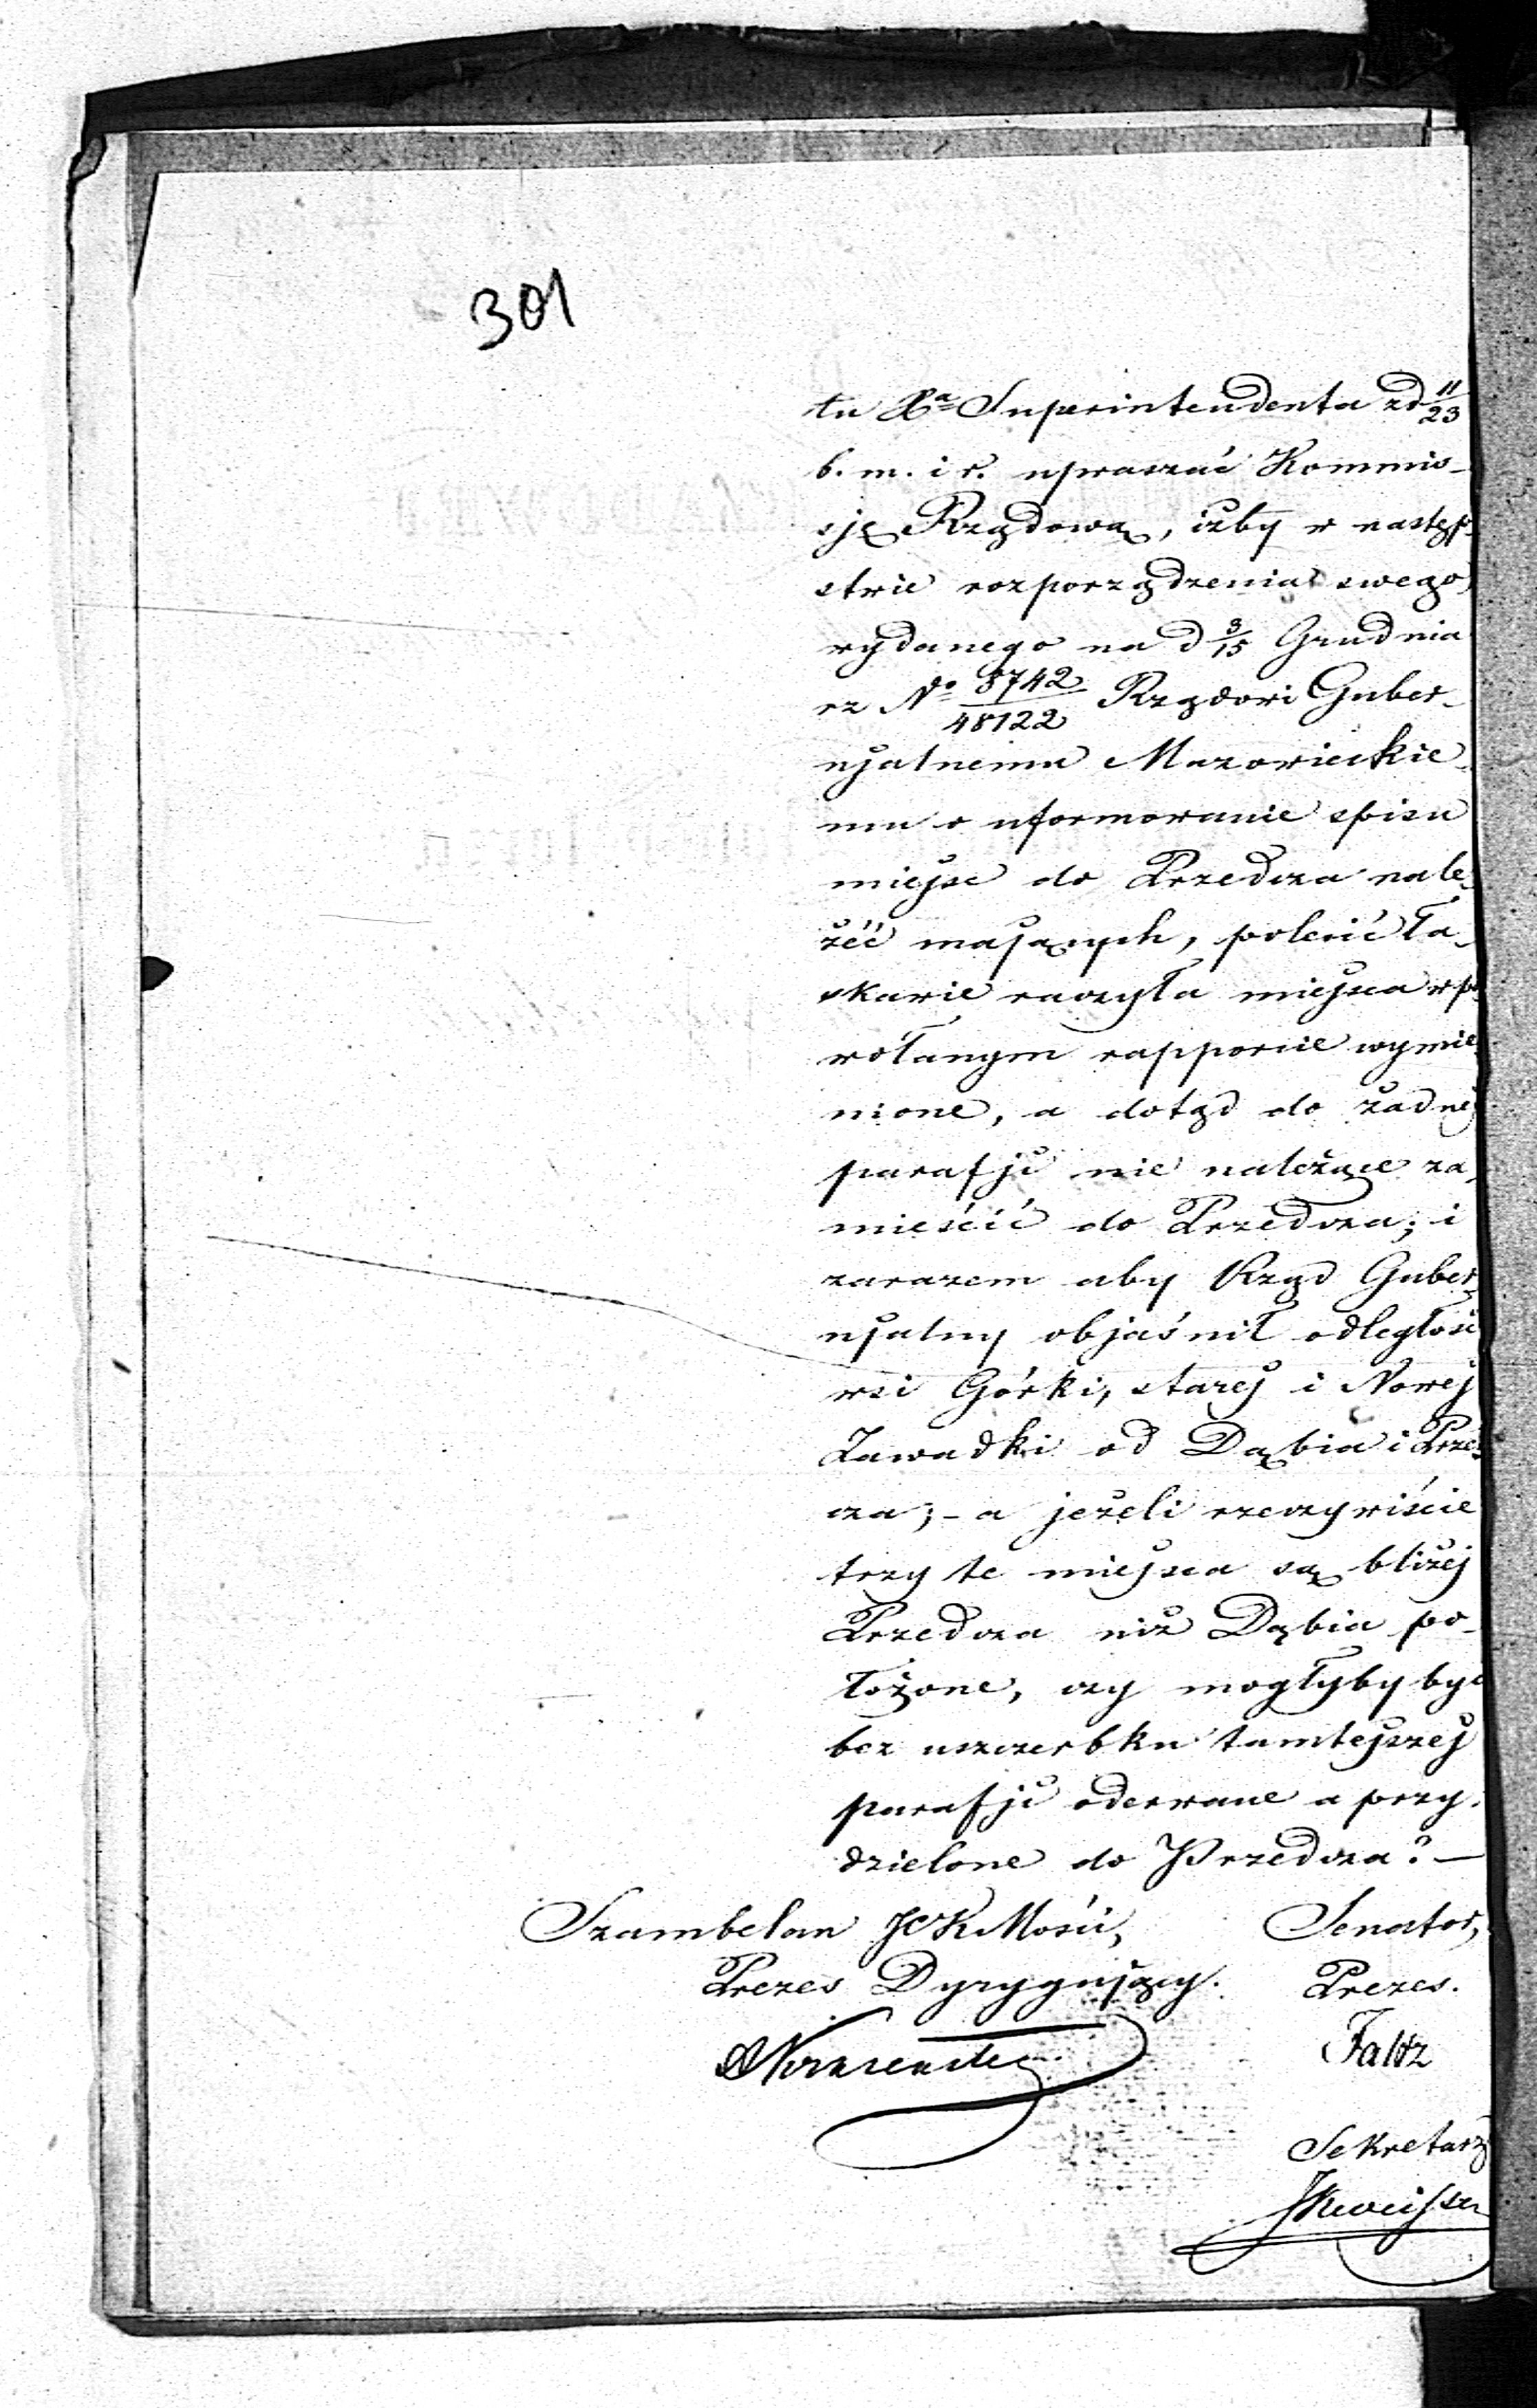 301
tu Xa Superintendenta z d 11/23
b. m. i r. upraszać Kommis-
sję Rządową, iżby w następ-
stwie rozporządzenia swego
wydanego na d 3/15 Grudnia
rz No 3742/48122 Rządowi Guber-
njalnemu Mazowieckie-
mu o uformowanie spisu
miejsc do Przedcza nale-
żéć mających, polecić ła-
skawie raczyła miejsca w po
wołanym rapporcie wymie
nione, a dotąd do żadnej
parafji nie należące za-
mieścić do Przedcza; i
zarazem aby Rząd Guber-
njalny objaśnił odległość
wsi Górki, starej i Nowej
Zawadki od Dąbia i Przed-
cza; - a jeżeli rzeczywiście
trzy te miejsca są bliżej
Przedcza niż Dąbia po-
łożone, czy mogłyby być
bez uszczerbku tamtejszej
parafji oderwane a przy-
dzielone do Przedcza? —
Szambelan JCKMości, Senator,
Prezes Dyrygujący. Prezes.
Faltz
Sekretarz